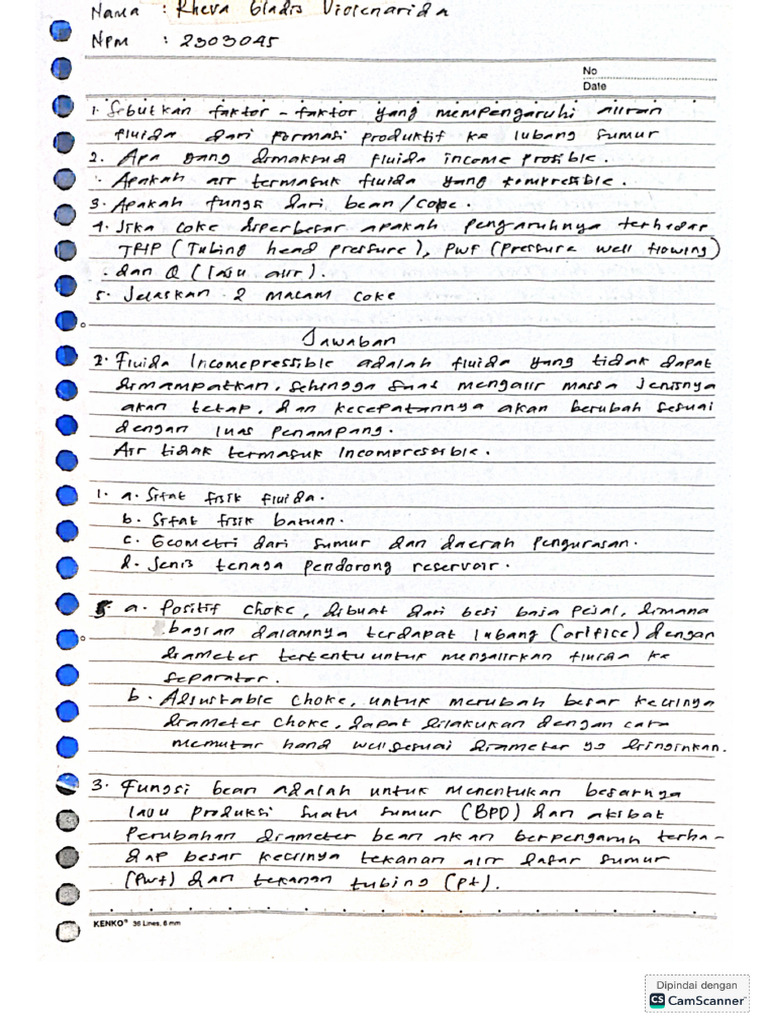 Nama : Rheva Gladis Violenarida
Npm : 2303045
No
Date
1. Sebutkan faktor - faktor yang mempengaruhi aliran
fluida dari formasi produktif ke lubang sumur
2. Apa yang dimaksud fluida income prosible.
. Apakah air termasuk fluida yang kompressible.
3. Apakah fungsi dari bean/coke.
4. Jika coke diperbesar apakah pengaruhnya terhadap
THP (Tubing head pressure), Pwf (Pressure well flowing)
. dan Q (laju alir).
5. Jelaskan 2 macam coke
Jawaban
2. Fluida Incomepressible adalah fluida yang tidak dapat
dimampatkan, sehingga saat mengalir massa jenisnya
akan tetap, dan kecepatannya akan berubah sesuai
dengan luas penampang.
Air tidak termasuk Incompressible.
1. a. Sifat fisik fluida.
b. Sifat fisik batuan.
c. Geometri dari sumur dan daerah pengurasan.
d. Jenis tenaga pendorong reservoir.
5. a. Positif choke, dibuat dari besi baja pejal, dimana
bagian dalamnya terdapat lubang (orifice) dengan
diameter tertentu untuk mengalirkan fluida ke
separator.
b. Adjustable choke, untuk merubah besar kecilnya
diameter choke, dapat dilakukan dengan cara
memutar hand well sesuai diameter yg diinginkan.
3. Fungsi bean adalah untuk menentukan besarnya
laju produksi suatu sumur (BPD) dan akibat
perubahan diameter bean akan berpengaruh terha-
dap besar kecilnya tekanan alir dasar sumur
(Pwf) dan tekanan tubing (Pt).
KENKO® 36 Lines, 6 mm
Dipindai dengan
CS CamScanner